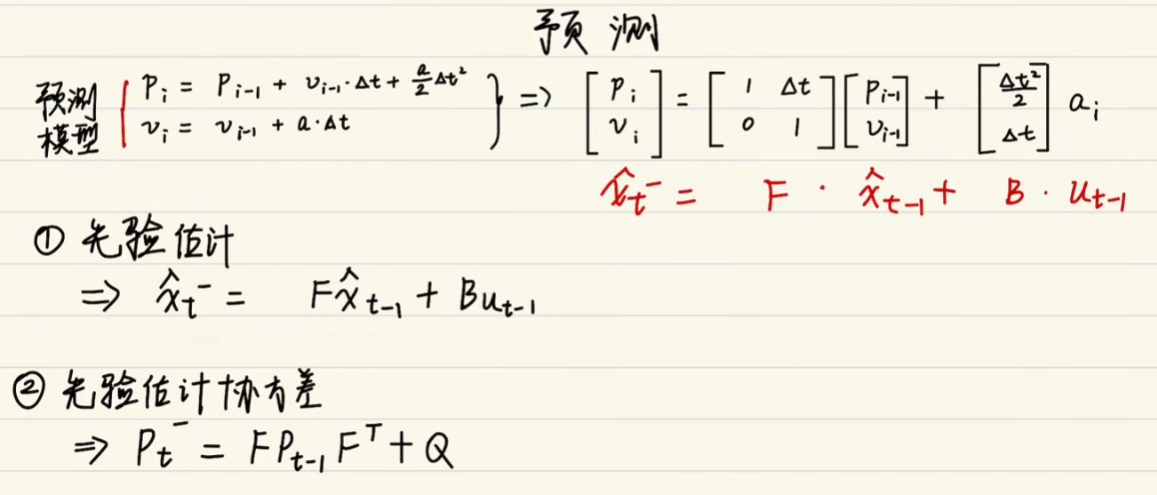 预测
预测模型 { p_i = p_{i-1} + v_{i-1}·Δt + \frac{a}{2}Δt² } => [p_i v_i] = [1 Δt 0 1] [p_{i-1} v_{i-1}] + [\frac{Δt²}{2} Δt] a_i
v_i = v_{i-1} + a·Δt
x̂_t⁻ = F · x̂_{t-1} + B · u_{t-1}
① 先验估计
=> x̂_t⁻ = F x̂_{t-1} + B u_{t-1}
② 先验估计协方差
=> P_t⁻ = F P_{t-1} F^T + Q